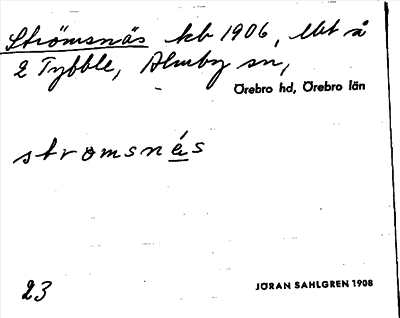 Strömsnäs kb 1906, lht å
2 Tybble, Almby sn,
Örebro hd, Örebro län
stromsnás
23
JÖRAN SAHLGREN 1908